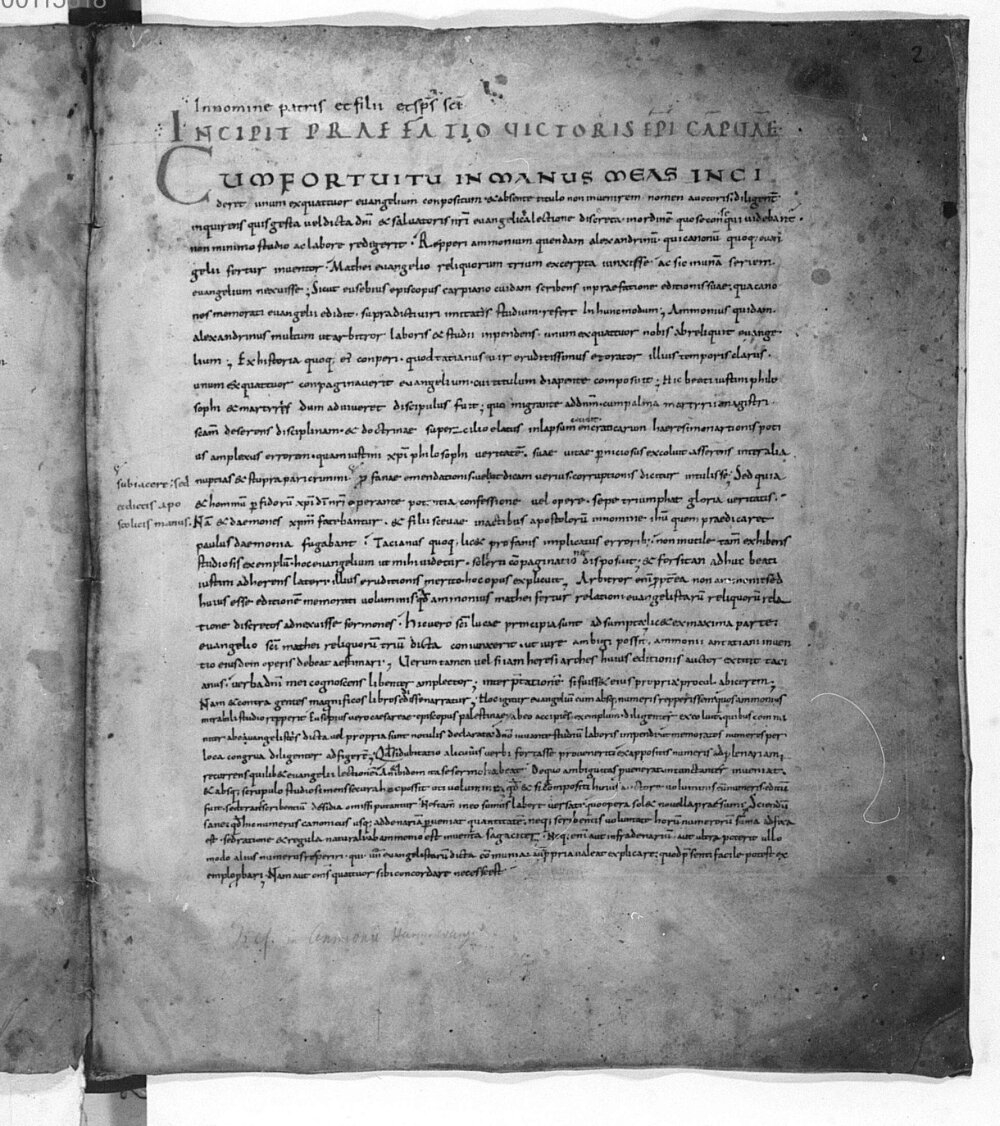 00115018
2
In nomine patris et filii et sp̄s sc̄i
INCIPIT PRAEFATIO VICTORIS EP̄I CAPUAE
CUM FORTUITU IN MANUS MEAS INCI
deret unum ex quattuor evangelium conpositum & absente titulo non invenirem nomen auctoris; diligent̄
inquirens quis gesta vel dicta dn̄i & salvatoris nr̄i evangelica lectione discreta in ordinem quo se consequi videbant̄
non minimo studio ac labore redigerit · Repperi ammonium quendam alexandrinū · qui canonū quoq; evan
gelii fertur inventor · Mathei evangelio reliquorum trium excerpta iunxisse · ac sic in unā seriem
evangelium nexuisse; Sicut eusebius episcopus carpiano cuidam scribens in praefatione editionis suae; qua cano
nes memorati evangelii edidit · supradicti viri imitatus studium · refert in hunc modum; Ammonius quidam
alexandrinus multum ut arbitror laboris & studii inpendens · unum ex quattuor nobis abreliquit evange
lium; Ex historia quoq; ei' conperi · quod tatianus vir eruditissimus et orator illius temporis clarus ·
unum ex quattuor conpaginaverit evangelium · cui titulum diapente composuit; Hic beati iustini philo
sophi & martyris dum adviveret discipulus fuit; quo migrante ad dn̄m · cum palma martyrii magistri
sc̄am deserens disciplinam · & doctrinae supercilio elatus in lapsum encraticarum haeresim
us amplexus errorem · quam iustini xp̄i philosophi veritatē · suae vitae perniciosus excoluit asserens inter alia
subiacere; sed
nuptias & stupra pari crimini profanae emendationis velut dicam verius corruptionis dicitur intulisse; Sed quia
et dictis apo
& hominū perfidorū xp̄i dn̄i nr̄i operante potentia confessione vel opere · sepe triumphat gloria veritatis ·
stolicis manus
Nā & daemones xp̄m fatebantur · & filii scevae in actibus apostolorū in nomine ihū quem praedicaret
paulus daemonia fugabant; Tacianus quoq; lic& profanis implicatus errorib; non inutile tam exhibens
studiosis exemplū · hoc evangelium ut mihi videtur · solerti conpaginatione disposuit; & forsitan adhuc beati
iustini adherens lateri · illius eruditionis merito hoc opus explicuit; Arbitror enī propterea non ammonii sed
huius esse editionē memorati voluminis · qđ ammonius mathei fertur relationi evangelistarū reliquorū rela
tione discretos adnexuisse sermones; Hic vero sc̄i lucae principia sunt adsumpta · lic& ex maxima parte
evangelio sc̄i mathei reliquorū triū dicta convinxerit · ut iure ambigi possit, ammonii an tatiani inven
tio eiusdem operis debeat aestimari; Verum tamen vel si iam heresiarches huius editionis auctor extitit taci
anus; verba dn̄i mei cognoscens libenter amplector; interpretationē si fuiss& eius propria procul abicerem;
Nam & contra gentes magnificos libros edidisse narratur; Hoc igitur evangeliū cum absq; numeris repperissem quos ammonius
mirabili studio repperit Eusepius vero caesareae episcopus palestinae ab eo accipiens exemplum · diligenter excoluit, quibus commu
niter ab evangelistis dicta vel propria sunt notulis declarata; dn̄o iuvante studiū laboris impendi · ut memoratos numeros per
loca congrua diligenter adfigerē; Q̄d si dubitatio alicuius verbi fortasse provenerit ex appositis numeris ad plenariam
recurrens quilib& evangelii lectionē · an ibidem ita se sermo habeat
& absq; scrupulo studiosi mens secura
fuit · sed transcribentiū desidia omissi putantur
sane qđ hoc numerus canonicus usq; ad denarium perveniat quantitatē; neq; scribentis voluntate horū numerorū suma adfixa
est · sed ratione & regula naturali ab ammonio est inventa sagaciter; Neq; enī aut infra denarium · aut ultra poterit ullo
modo alius numerus reperiri · qui · IIII evangelistarū dicta cōmunia aut propria valeat explicare; quod praesenti facile potest ex
emplo probari; Nam aut om̄s quattuor sibi concordare necesse est